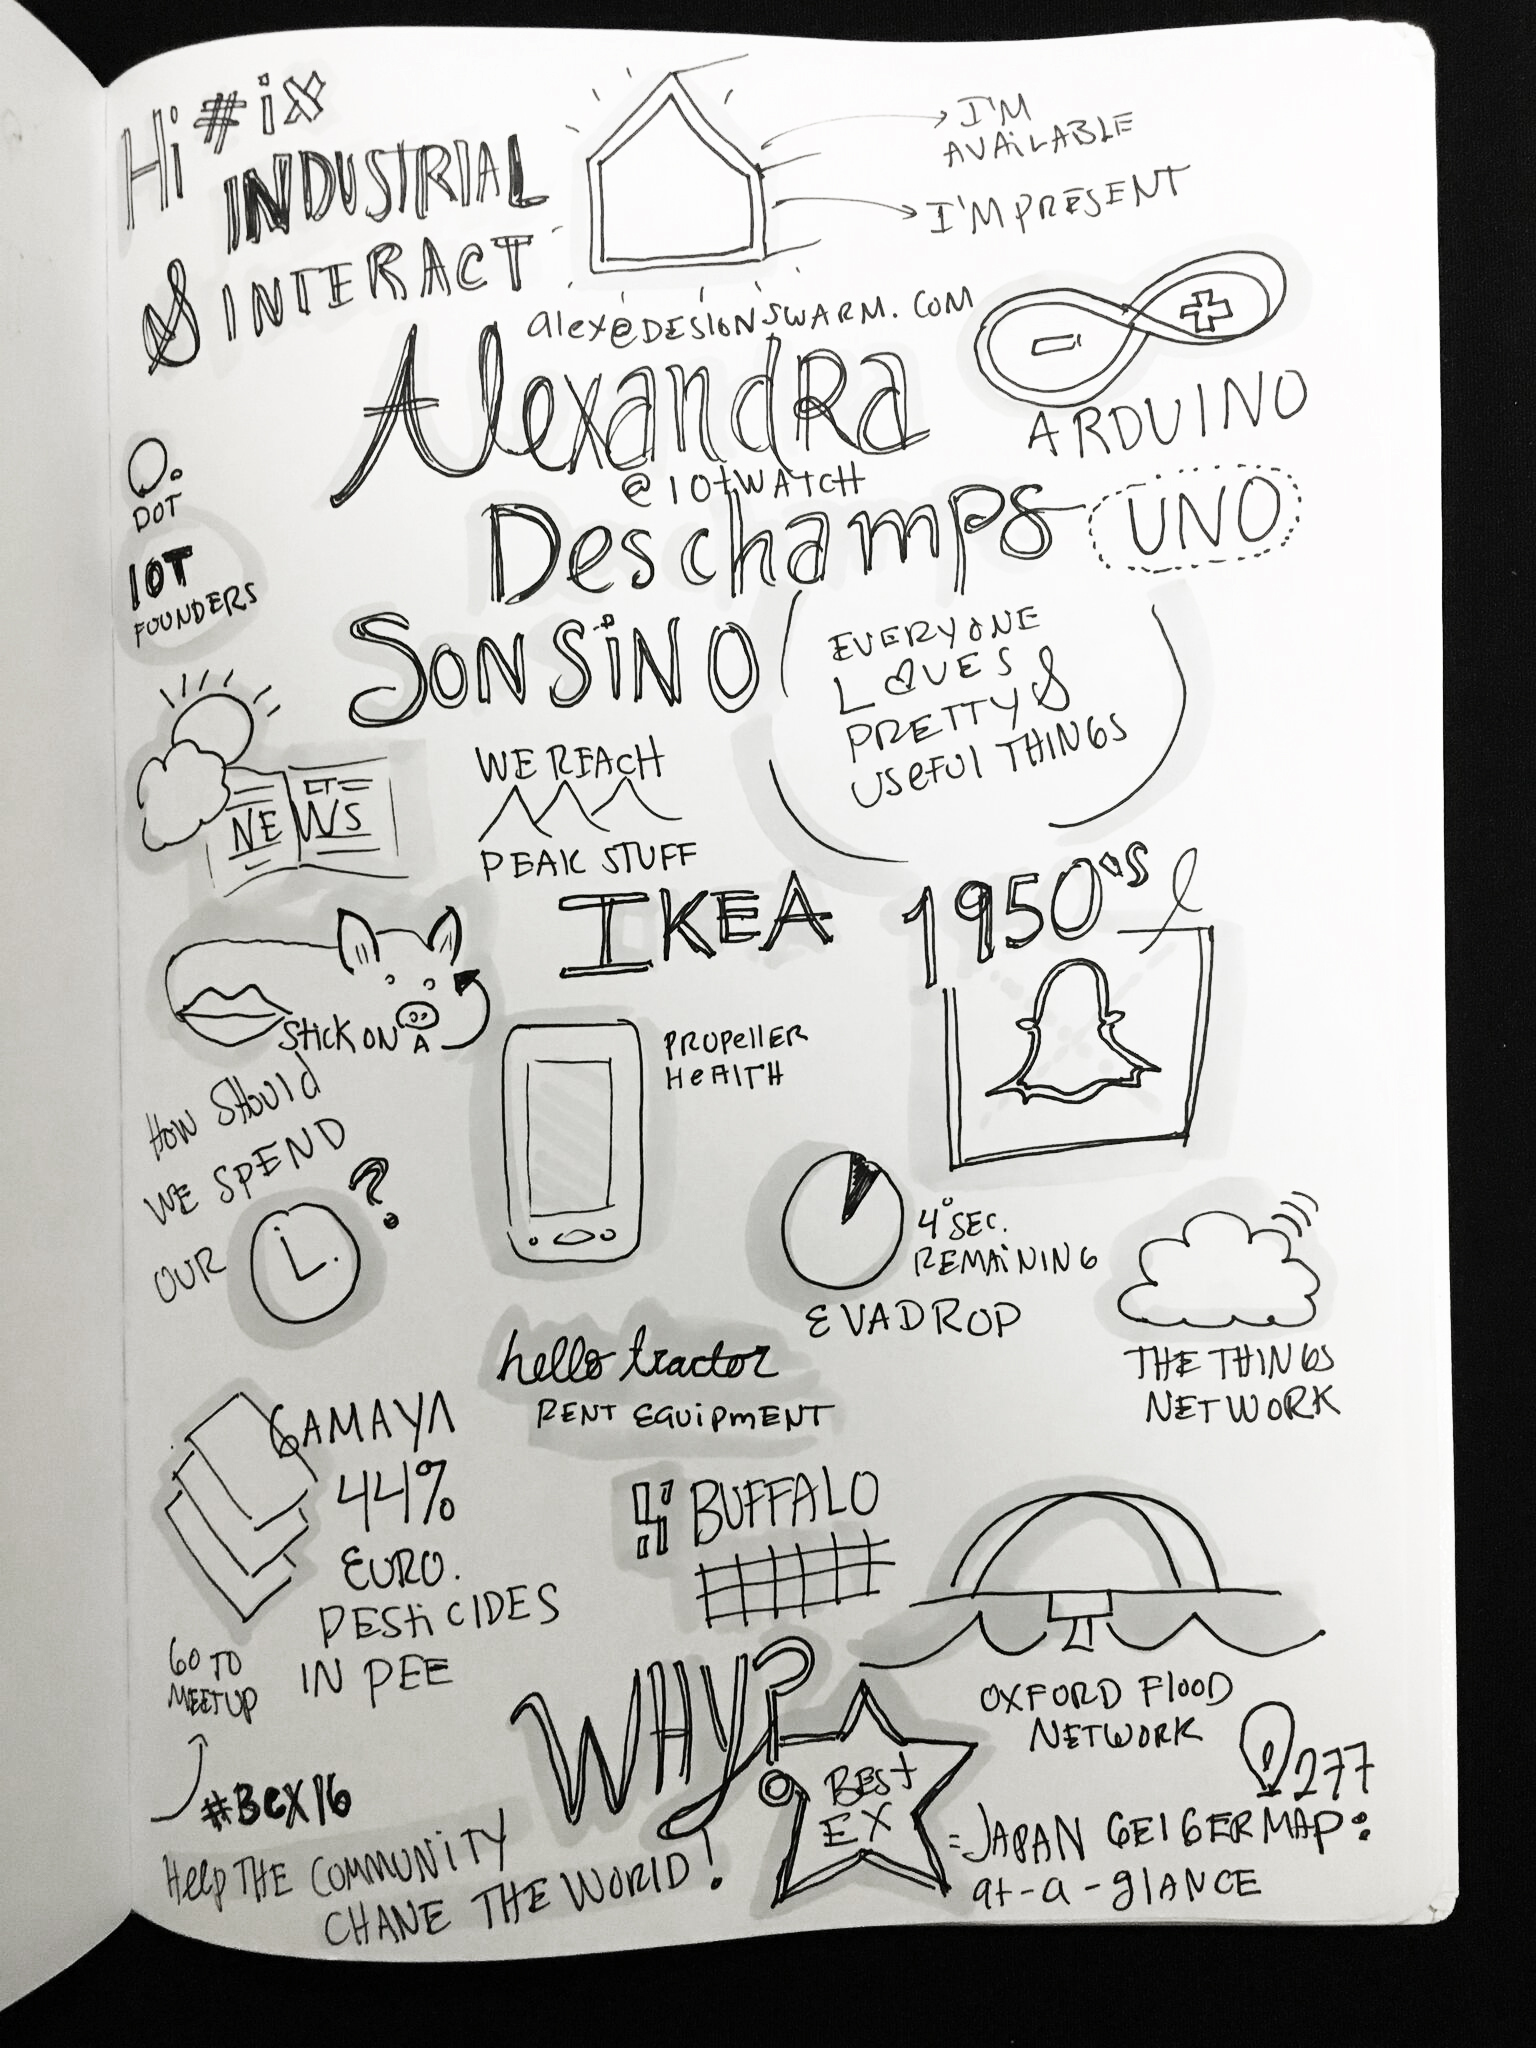 Hi #ix
INDUSTRIAL
& INTERACT
I'M
AVAILABLE
I'M PRESENT
alex@DESIGNSWARM.COM
Alexandra
@iotWATCH
Deschamps
SONSiNO
ARDUINO
UNO
DOT
IOT
FOUNDERS
EVERYONE
LOVES
PRETTY &
USEFUL THINGS
NEWS
WE REACH
PEAK STUFF
IKEA
1950's
STICK ON A
PROPELLER
HEALTH
HOW SHOULD
WE SPEND
OUR ?
4 SEC.
REMAINING
EVADROP
THE THINGS
NETWORK
hello tractor
RENT EQUIPMENT
GAMAYA
44%
EURO.
PESTiCIDES
IN PEE
BUFFALO
OXFORD FLOOD
NETWORK
GO TO
MEETUP
#BCX16
WHY?
BEST
EX
277
=JAPAN GEIGER MAP:
at-a-glANCE
HELP THE COMMUNITY
CHANE THE WORLD!